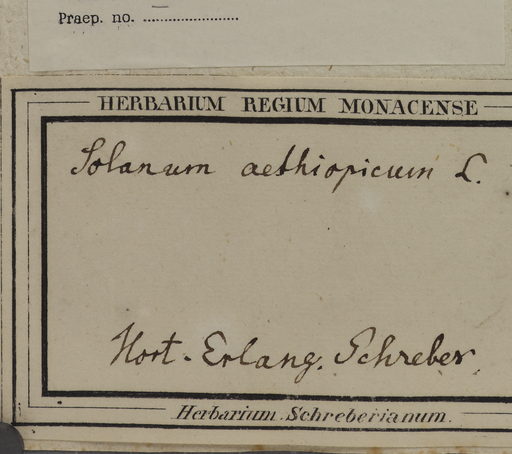 Praep. no. ........................
HERBARIUM REGIUM MONACENSE
Solanum aethiopicum L.
Hort. Erlang. Schreber
Herbarium Schreberianum.